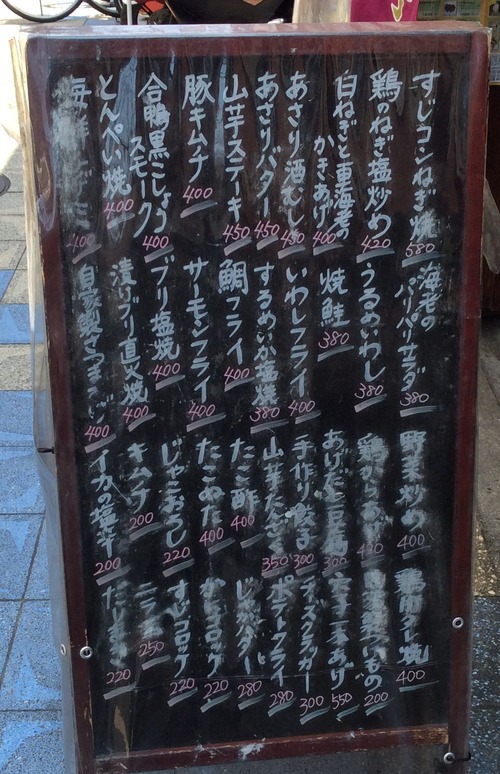 すじコンねぎ焼 580
鶏のねぎ塩炒め 420
白ねぎと東海老の
かきあげ 400
あさり酒むし 450
あさりバター 450
山芋ステーキ 450
豚キムチ 400
合鴨黒こしょう
スモーク 400
とんぺい焼 400
海鮮 400
海老の
パリパリサラダ 380
うるめいわし 380
焼鮭 380
いわしフライ 400
するめいか塩焼 380
鯛フライ 400
サーモンフライ 400
ブリ塩焼 400
漬けブリ直火焼 400
自家製さつまあげ 400
野菜炒め 400
鶏からあげ 400
あげだし豆腐 300
手作り餃子 300
山芋たんざく 350
たこ酢 400
たこぬた 400
じゃこおろし 220
キムチ 200
イカの塩辛 200
鶏肝タレ焼 400
200
一本あげ 550
チーズフライ 300
ポテトフライ 280
じゃがバター 280
かにコロッケ 220
すじコロッケ 220
ニラ 250
だしまき 220